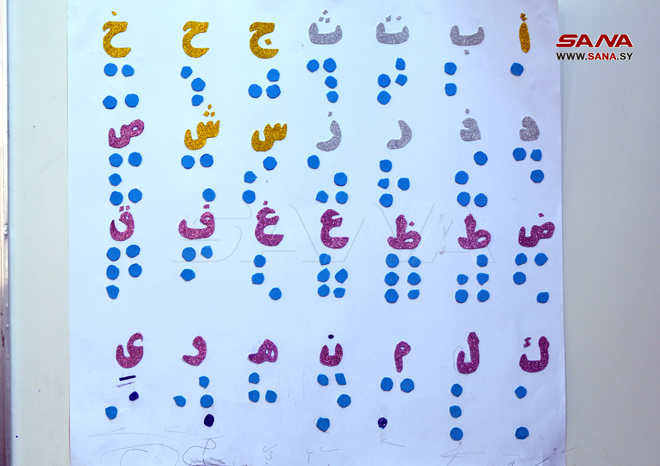 SANA
WWW.SANA.SY
أ ب ت ث ج ح خ
د ذ ر ز س ش ص
SANA
ض ط ظ ع غ ف ق
ك ل م ن ه و ي